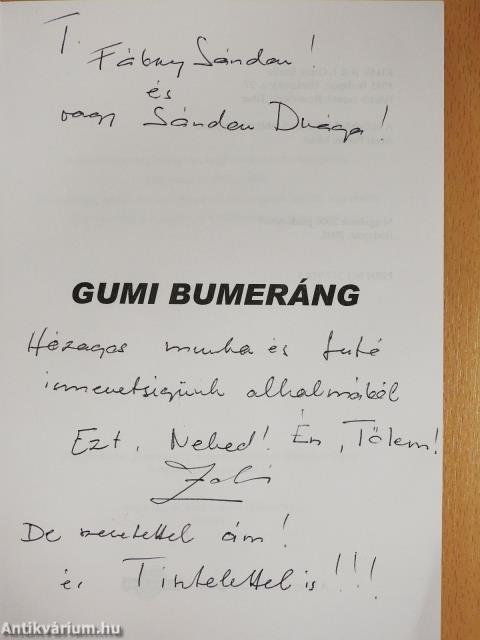 T. Fábry Sándor!
és
vagy Sándor Drága!
GUMI BUMERÁNG
Hézagos munka és futó
ismeretségünk alkalmából
Ezt, Neked! Én, Tőlem!
Zoli
De szeretettel ám!
és Tisztelettel is!!!
Antikvárium.hu